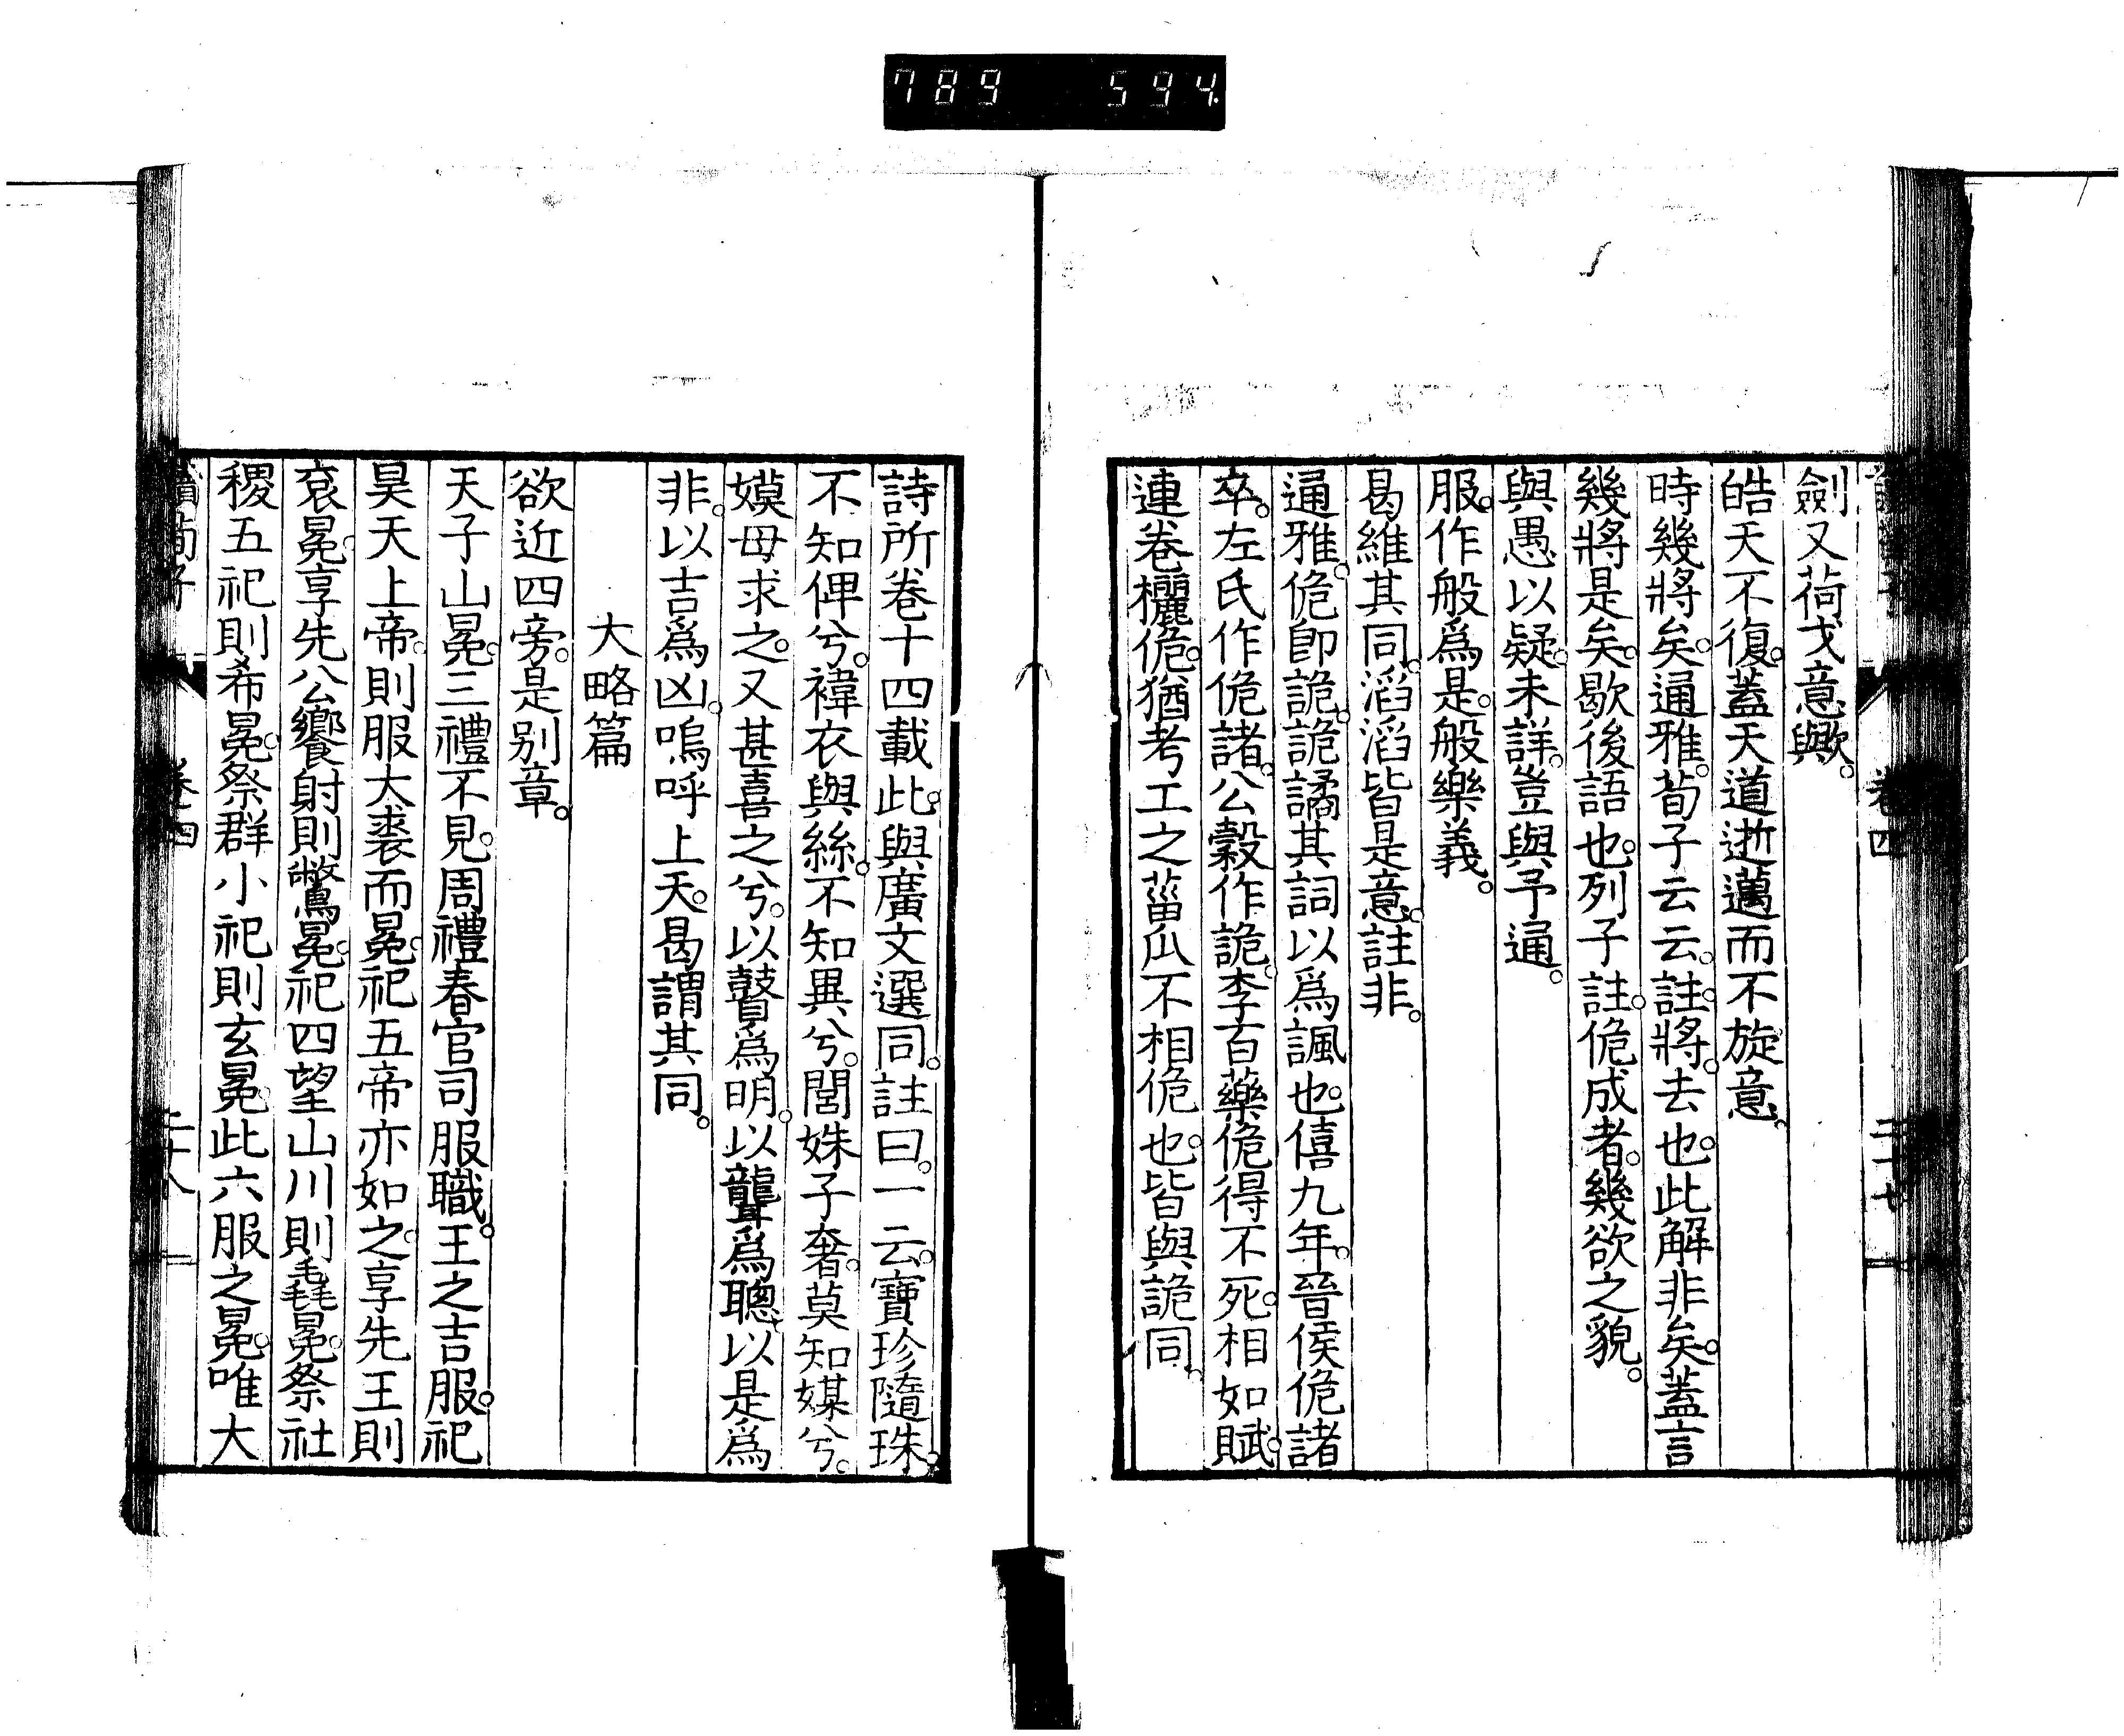 789 594
劍又荷戈意歟。
皓天不復。蓋天道逝邁而不旋意。
時幾將矣。通雅。荀子云云。註。將。去也。此解非矣。蓋言
幾將是矣。歇後語也。列子註。佹成者。幾欲之貌。
與愚以疑。未詳。豈與予通。
服。作般爲是。般樂義。
曷維其同。滔滔皆是意。註非。
通雅。佹卽詭。詭譎其詞以爲諷也。僖九年。晉侯佹諸
卒。左氏作佹諸。公穀作詭。李百藥佹得不死。相如賦。
連卷欐佹。猶考工之菑瓜不相佹也。皆與詭同。
卷四
二十七
詩所卷十四載此。與廣文選同。註曰。一云。寶珍隨珠。
不知俾兮。褘衣與絲。不知異兮。閭姝子奢。莫知媒兮。
嫫母求之。又甚喜之兮。以瞽爲明。以聾爲聰。以是爲
非。以吉爲凶。嗚呼上天。曷謂其同。
大略篇
欲近四旁。是别章。
天子山冕。三禮不見。周禮春官司服職。王之吉服。祀
昊天上帝。則服大裘而冕。祀五帝亦如之。享先王則
袞冕。享先公饗射則鷩冕。祀四望山川則毳冕。祭社
稷五祀則希冕。祭群小祀則玄冕。此六服之冕。唯大
讀荀子
卷四
二十八